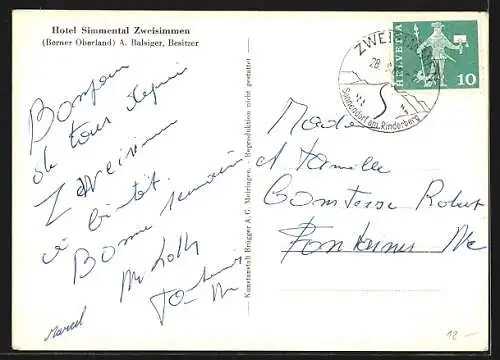 Hotel Simmental Zweisimmen
(Berner Oberland) A. Balsiger, Besitzer
Bonjour
de tous depuis
Zweisimmen
à bientôt.
Bonne semaine
Marcel
Kunstanstalt Brügger A. G. Meiringen. - Reproduktion nicht gestattet -
ZWEISIMMEN
28.
Sonnendorf am Rinderberg
HELVETIA
10
Madame
et famille
Comtesse Robert
Fontaines Ne
12 -